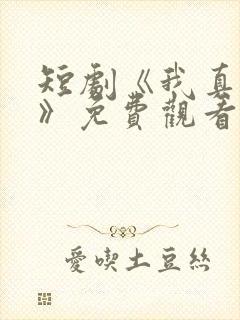 短劇《我真
》免費觀看
愛喫土豆絲